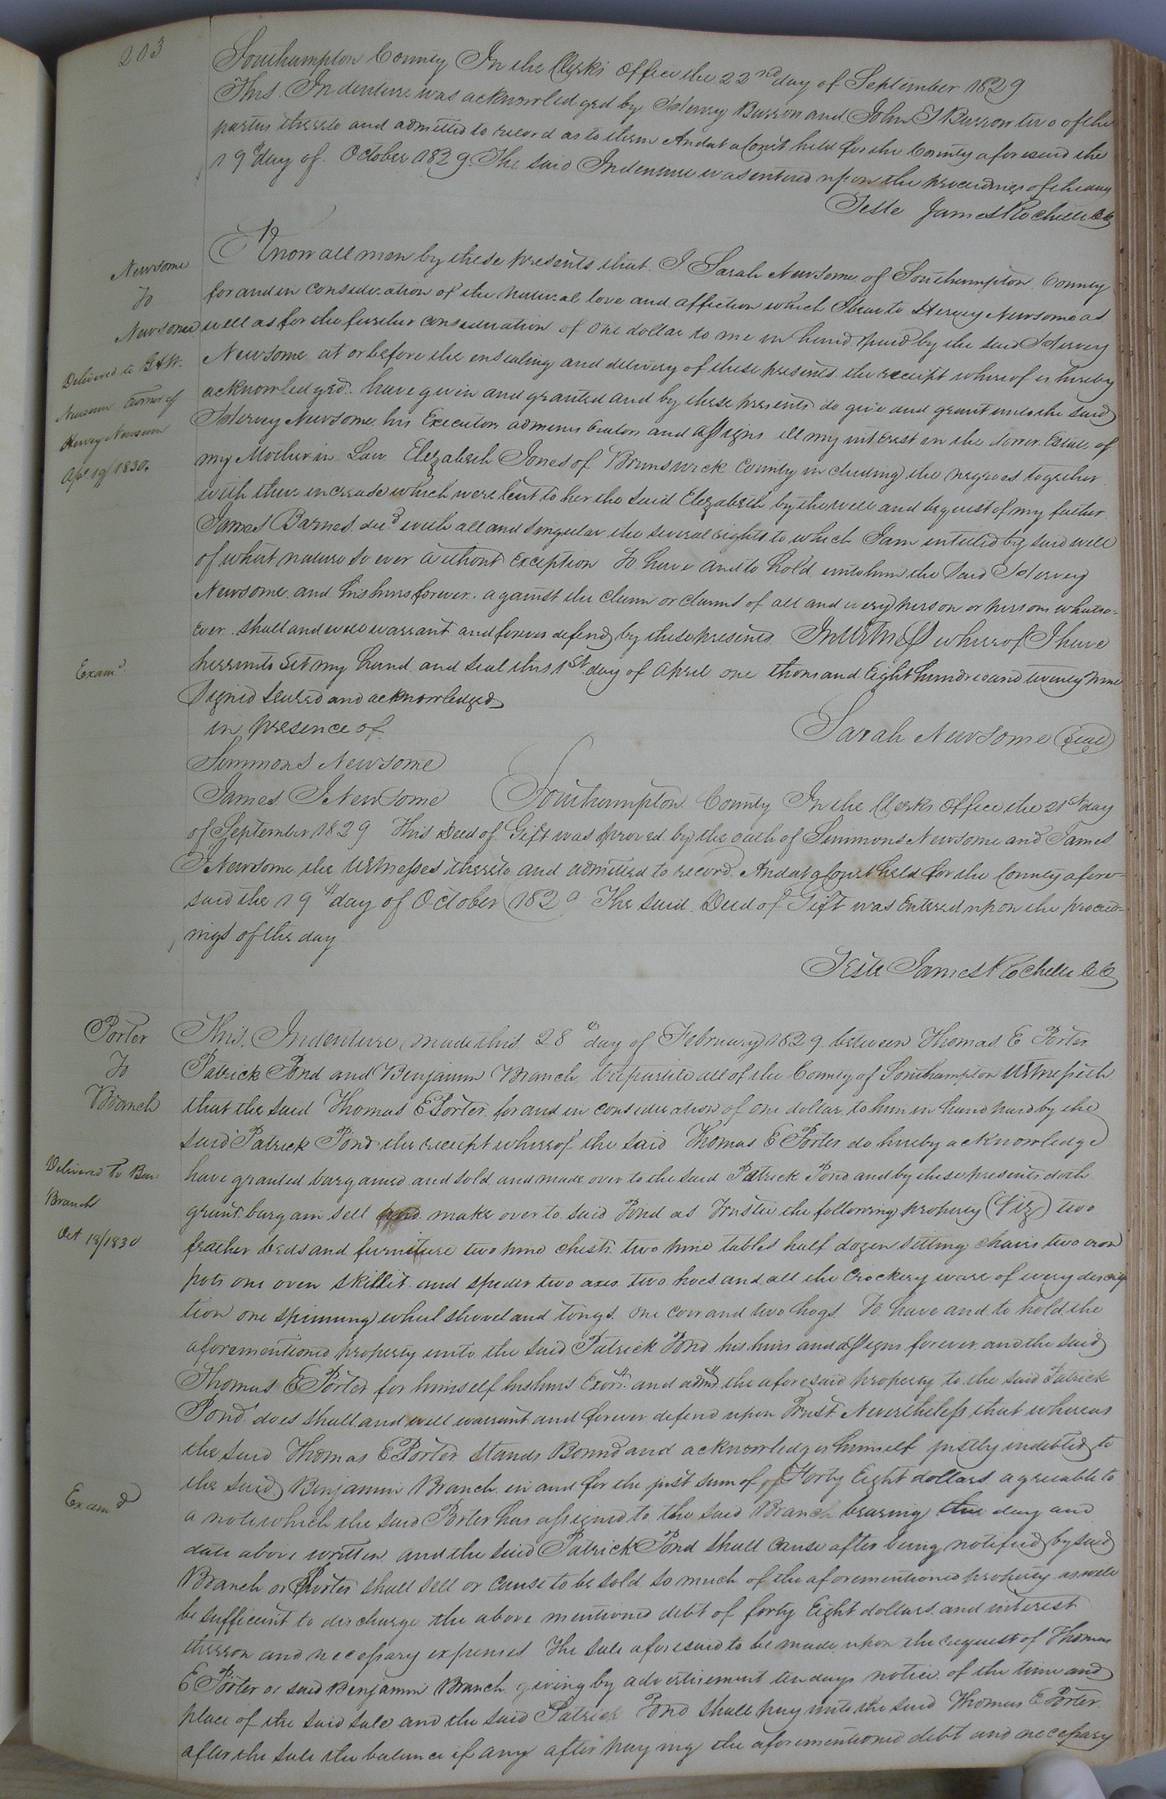 203
Southampton County In the Clerks Office the 22nd day of September 1829
This Indenture was acknowledged by Hervey Burson and John Burson two of the
parties thereto and admitted to record as to them And at a Court held for the County aforesaid the
19th day of October 1829. The said Indenture was entered upon the proceedings of the day
Teste James Rochelle CC
Newsome
To
Newsome
Delivered to
Newsom Exors of
Henry Newsom
Apl 19/1830.
Know all men by these presents that I Sarah Newsome of Southampton County
for and in consideration of the natural love and affection which I bear to Hervey Newsome as
well as for the further consideration of one dollar to me in hand paid by the said Hervey
Newsome at or before the ensealing and delivery of these presents the receipt whereof is hereby
acknowledged have given and granted and by these presents do give and grant unto the said
Hervey Newsome his Executors administrators and assigns all my interest in the Estate of
my Mother in Law Elizabeth Jones of Brunswick County including the negroes together
with their increase which were lent to her the said Elizabeth by the will and bequest of my father
James Barnes decd with all and singular the several rights to which I am intitled by said will
of what nature so ever without exception To have and to hold unto him the said Hervey
Newsome and his heirs forever against the claim or claims of all and every person or persons whatso-
ever shall and will warrant and forever defend by these presents In Witness whereof I have
hereunto set my hand and seal this 1st day of April one thousand Eight hundred and twenty nine
Examd
Signed sealed and acknowledged
in presence of
Sarah Newsome (seal)
Simmons Newsome
James J Newsome
Southampton County In the Clerks Office the 21st day
of September 1829 This Deed of Gift was proved by the oath of Simmons Newsome and James
J Newsome the Witnesses thereto and admitted to record And at a Court held for the County afore-
said the 19th day of October 1829 The said Deed of Gift was Entered upon the proceed-
ings of the day
Teste James Rochelle CC
Porter
To
Branch
Delivered to Ben
Branch
Oct 18/1830
This Indenture made this 28th day of February 1829 between Thomas E Porter
Patrick Pond and Benjamin Branch tripartite all of the County of Southampton Witnesseth
that the said Thomas E Porter for and in consideration of one dollar to him in hand paid by the
said Patrick Pond the receipt whereof the said Thomas E Porter do hereby acknowledge
have granted bargained and sold and made over to the said Patrick Pond and by these presents doth
grant bargain sell and make over to said Pond as Trustee the following property (Viz) two
feather beds and furniture two pine chests two pine tables half dozen sitting chairs two iron
pots one oven skillit and spider two axes two hoes and all the Crockery ware of every descrip
tion one spinning wheel shovel and tongs one cow and two hogs To have and to hold the
aforementioned property unto the said Patrick Pond his heirs and assigns forever and the said
Thomas E Porter for himself his heirs Exors and admrs the aforesaid property to the said Patrick
Pond does shall and will warrant and forever defend upon Trust Nevertheless that whereas
the said Thomas E Porter stands Bound and acknowledges himself justly indebted to
the said Benjamin Branch in and for the just sum of Forty Eight dollars agreeable to
Examd
a note which the said Porter has assigned to the said Branch bearing the day and
date above written and the said Patrick Pond shall cause after being notified by said
Branch or Porter shall sell or cause to be sold so much of the aforementioned property as will
be sufficient to discharge the above mentioned debt of forty Eight dollars and interest
thereon and necessary expenses The sale aforesaid to be made upon the request of Thomas
E Porter or said Benjamin Branch giving by advertisement ten days notice of the time and
place of the said sale and the said Patrick Pond shall pay unto the said Thomas E Porter
after the sale the balance if any after paying the aforementioned debt and necessary